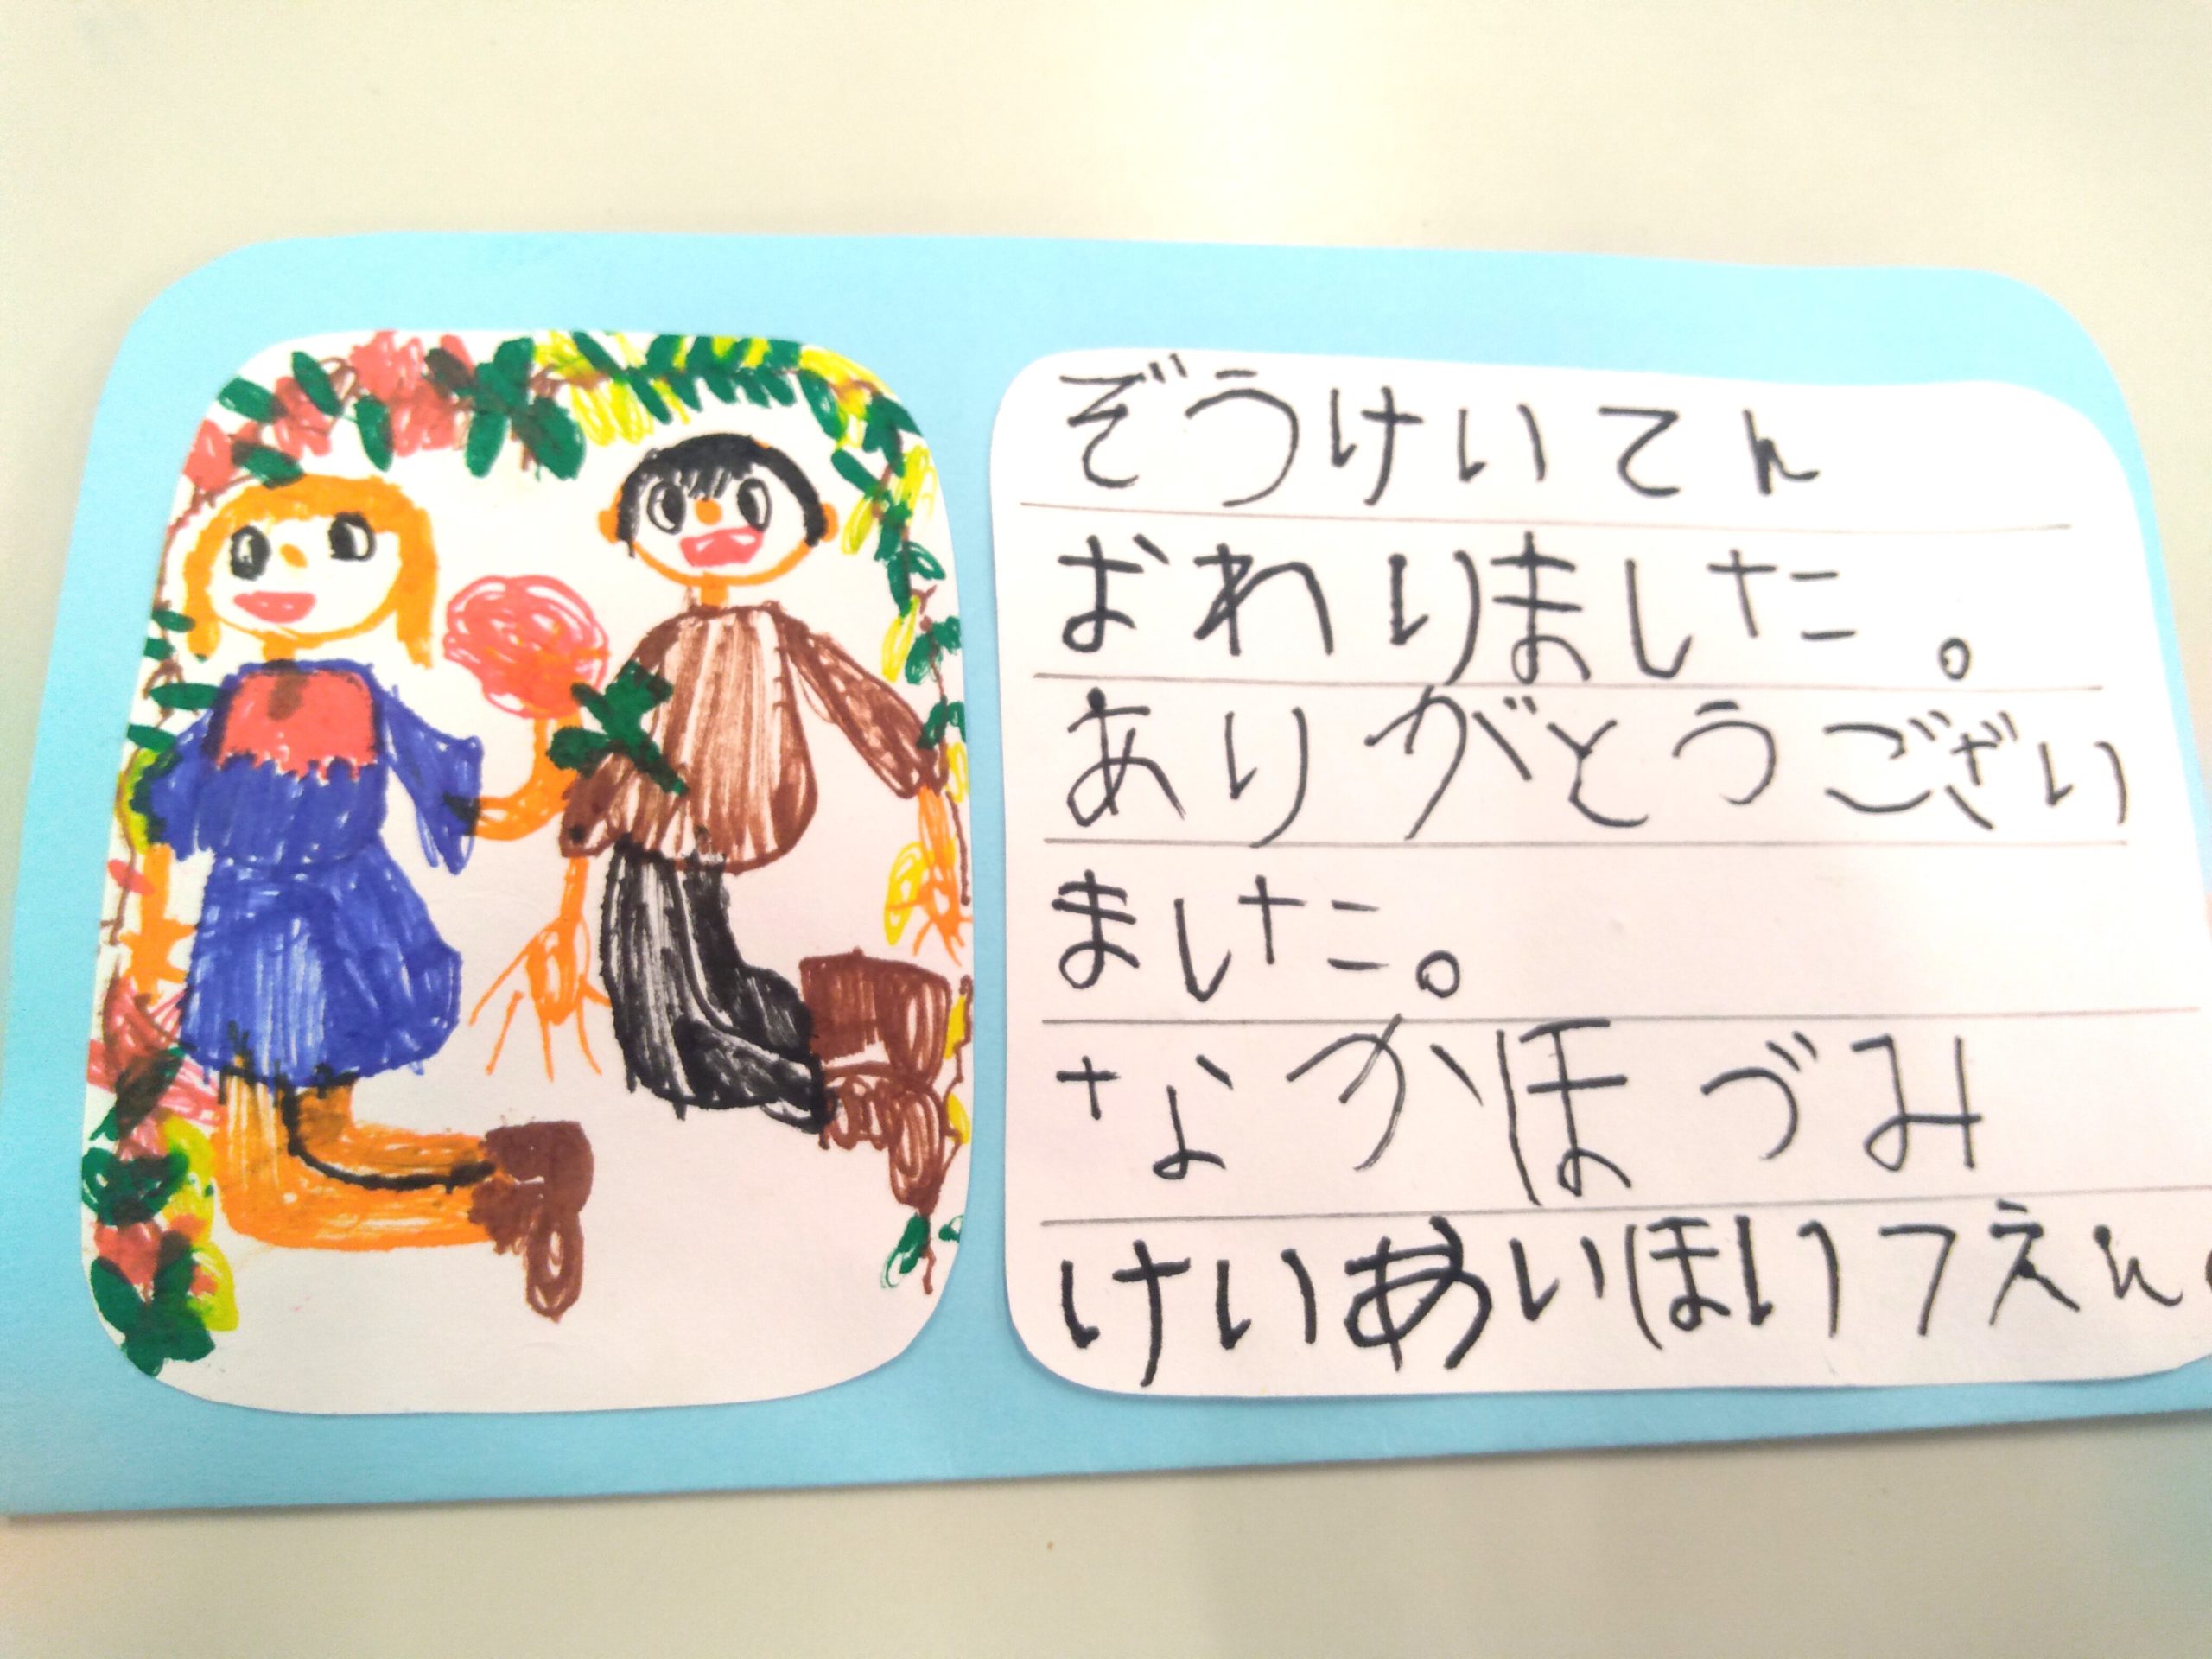 ぞうけいてん
おわりました。
ありがとうござい
ました。
なかほづみ
けいあいほいつえん